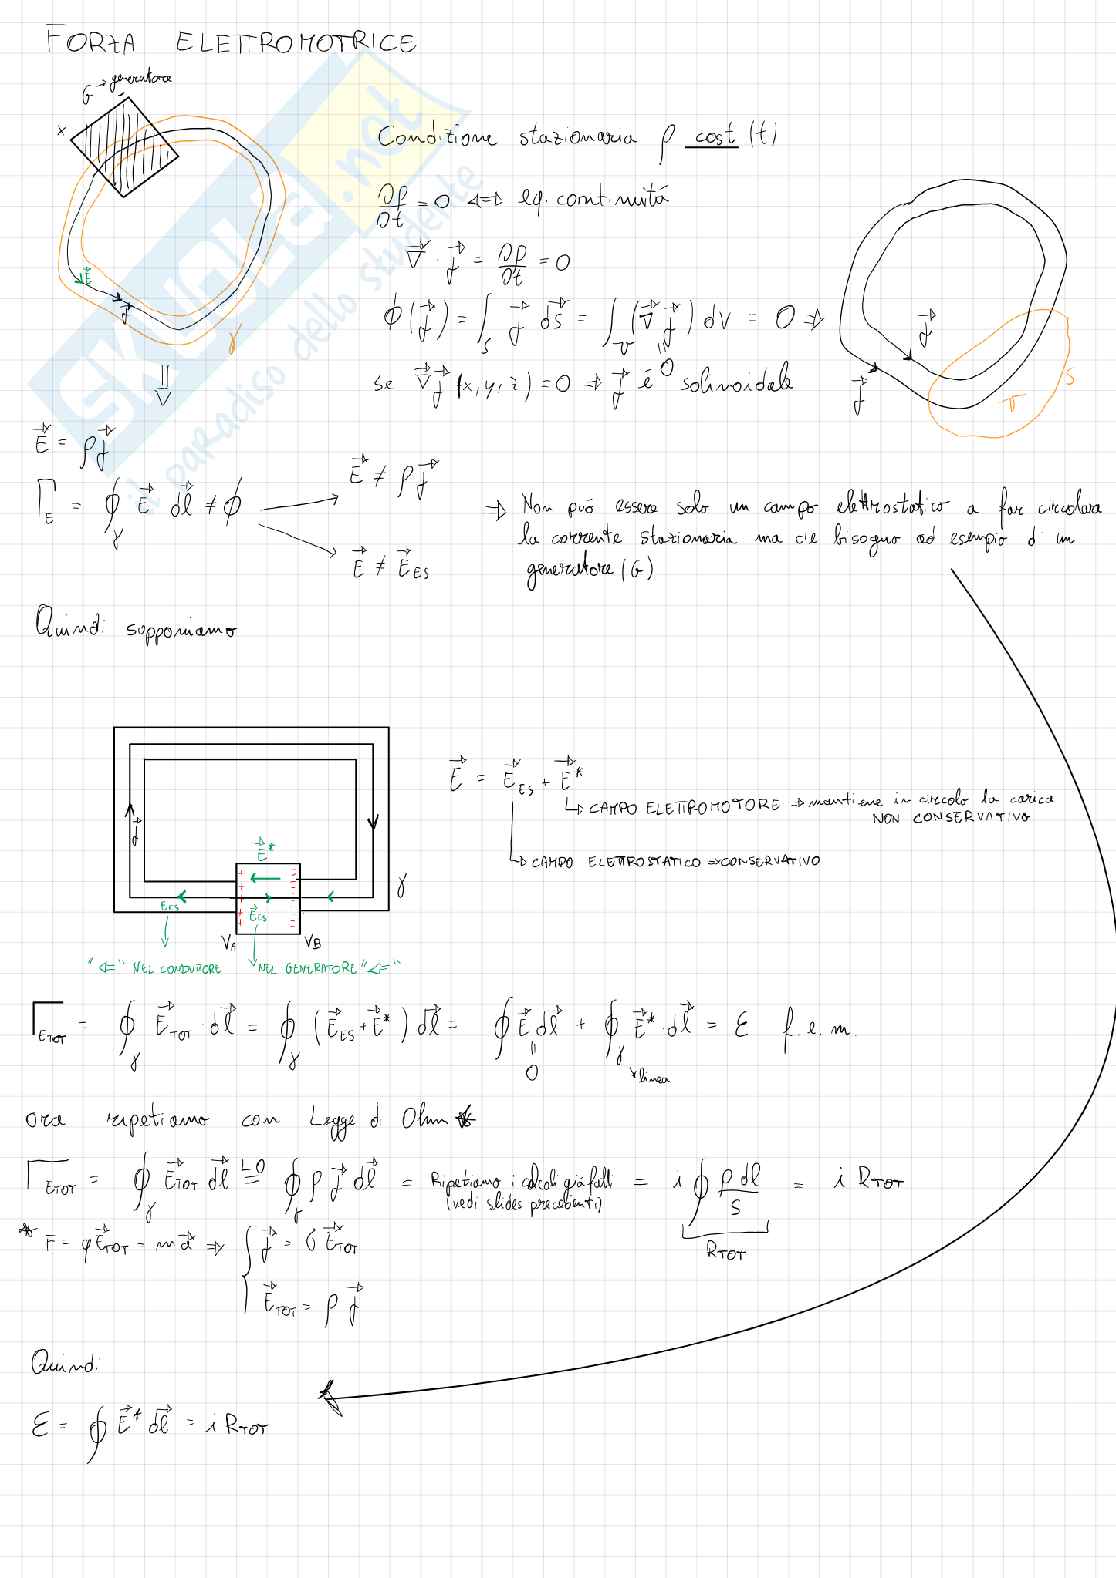 FORZA ELETTROMOTRICE
G → generatore
Condizione stazionaria ρ cost (t)
∂ρ/∂t = 0 ⇔ eq. continuità
∇⃗ · J⃗ = ∂ρ/∂t = 0
E⃗
J⃗
γ
ϕ(J⃗) = ∫_S J⃗ dS⃗ = ∫_τ (∇⃗ J⃗) dv = 0 ⇒
"
0
se ∇⃗ J⃗ (x, y, z) = 0 ⇒ J⃗ è solinoidale
J⃗
J⃗
τ
S
⇓
E⃗ = ρJ⃗
Γ_E = ∮_γ E⃗ dl⃗ ≠ ϕ
E⃗ ≠ ρJ⃗
E⃗ ≠ E⃗_ES
⇒ Non può essere solo un campo elettrostatico a far circolare
la corrente stazionaria ma c'è bisogno ad esempio di un
generatore (G)
Quindi supponiamo
E⃗ = E⃗_ES + E⃗*
↳ CAMPO ELETTROMOTORE → mantiene in circolo la carica
NON CONSERVATIVO
↳ CAMPO ELETTROSTATICO ⇒ CONSERVATIVO
J⃗
E⃗*
γ
E_ES
E⃗_ES
V_A
V_B
"⇐" NEL CONDUTTORE
NEL GENERATORE "⇐"
Γ_ETOT = ∮_γ E⃗_TOT · dl⃗ = ∮_γ (E⃗_ES + E⃗*) dl⃗ = ∮ E⃗ dl⃗ + ∮_γ E⃗* · dl⃗ = ε f.e.m.
"
0
*linea
ora ripetiamo con Legge di Ohm *
Γ_ETOT = ∮_γ E⃗_TOT dl⃗ =^{LO} ∮_γ ρ J⃗ dl⃗ = Ripetiamo i calcoli già fatti (vedi slides precedenti) = i ∮ ρ dl/S = i R_TOT
R_TOT
* F⃗ = qE⃗_TOT = m a⃗ ⇒ { J⃗ = σ E⃗_TOT
E⃗_TOT = ρ J⃗
Quindi
ε = ∮ E⃗* dl⃗ = i R_TOT
SKUOLA.net
il paradiso dello studente